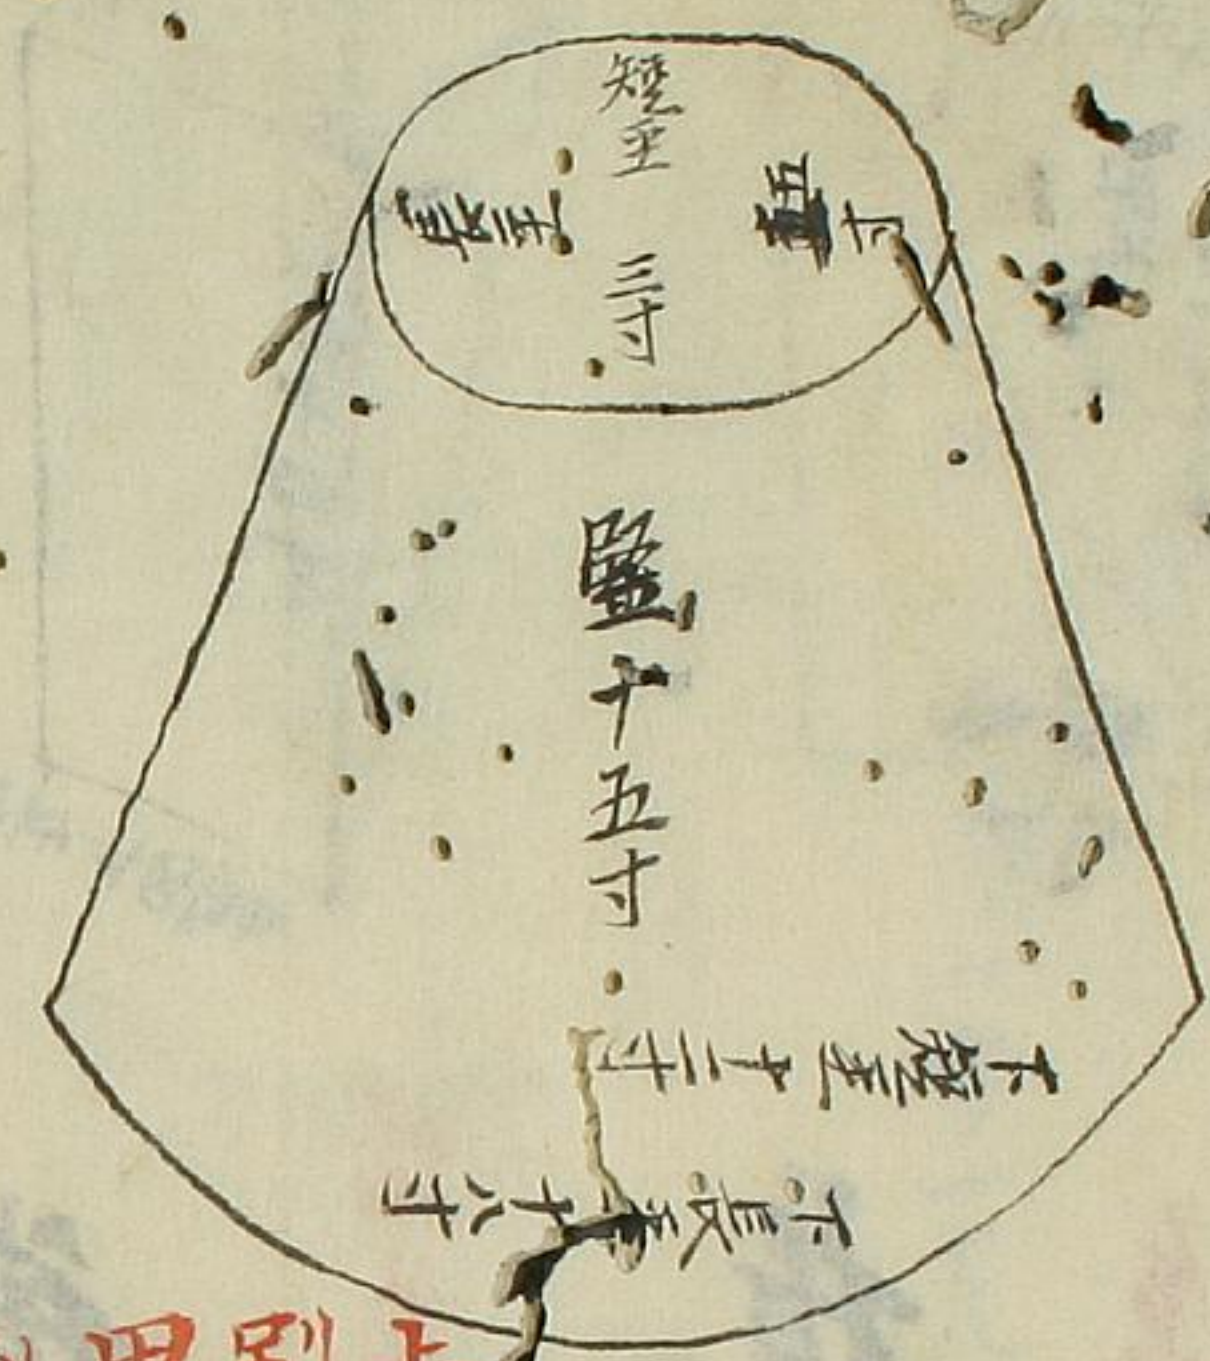 短圣 三寸
長圣 五寸
竪十五寸
下短圣十二寸
下長圣十八寸